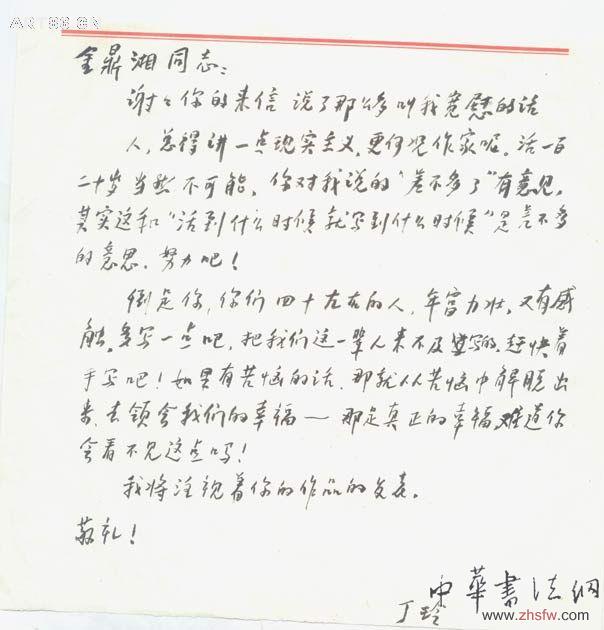 ART86.CN
金鼎湘同志：
谢谢你的来信 说了那么多叫我宽慰的话
人，总得讲一点现实主义，更何况作家呢。活一百
二十岁当然不可能，你对我说的“差不多了”有意见，
其实这和“活到什么时候就写到什么时候”是差不多
的意思。努力吧！
倒是你，你们四十左右的人，年富力壮，又有感
触，多写一点吧，把我们这一辈人来不及写的，赶快着
手写吧！如果有苦恼的话，那就从苦恼中解脱出
来，去领会我们的幸福——那是真正的幸福，难道你
会看不见这点吗！
我将注视着你的作品的发表。
敬礼！
丁玲
中华书法网
www.zhsfw.com